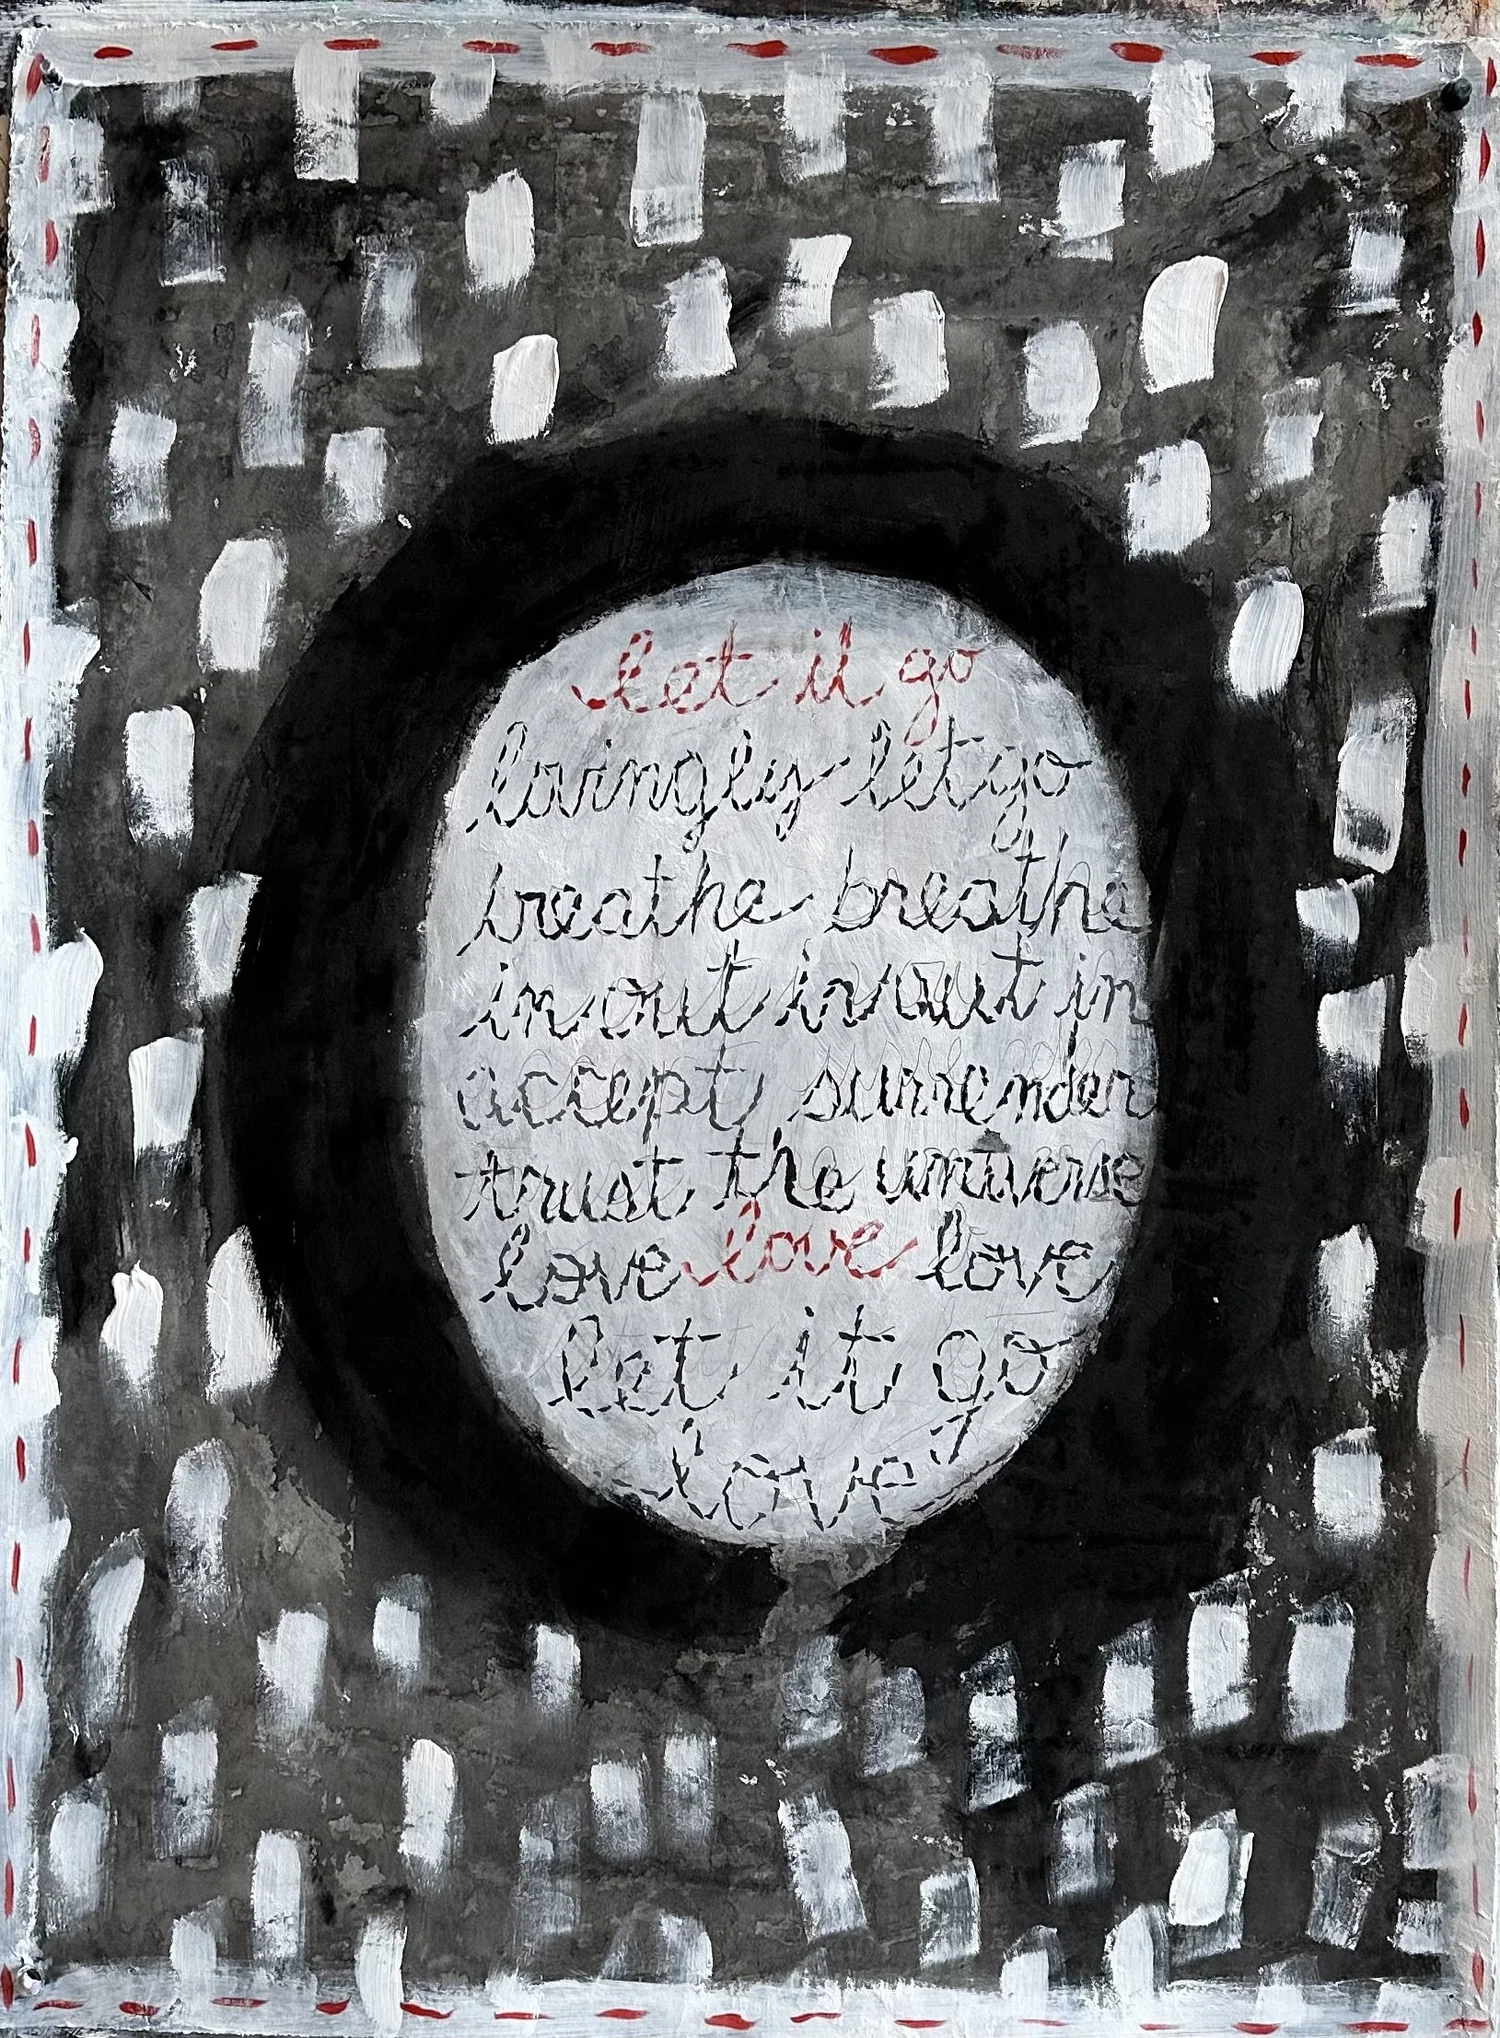 let it go
lovingly let go
breathe breathe
in out in out in
accept surrender
trust the universe
love love love
let it go
love